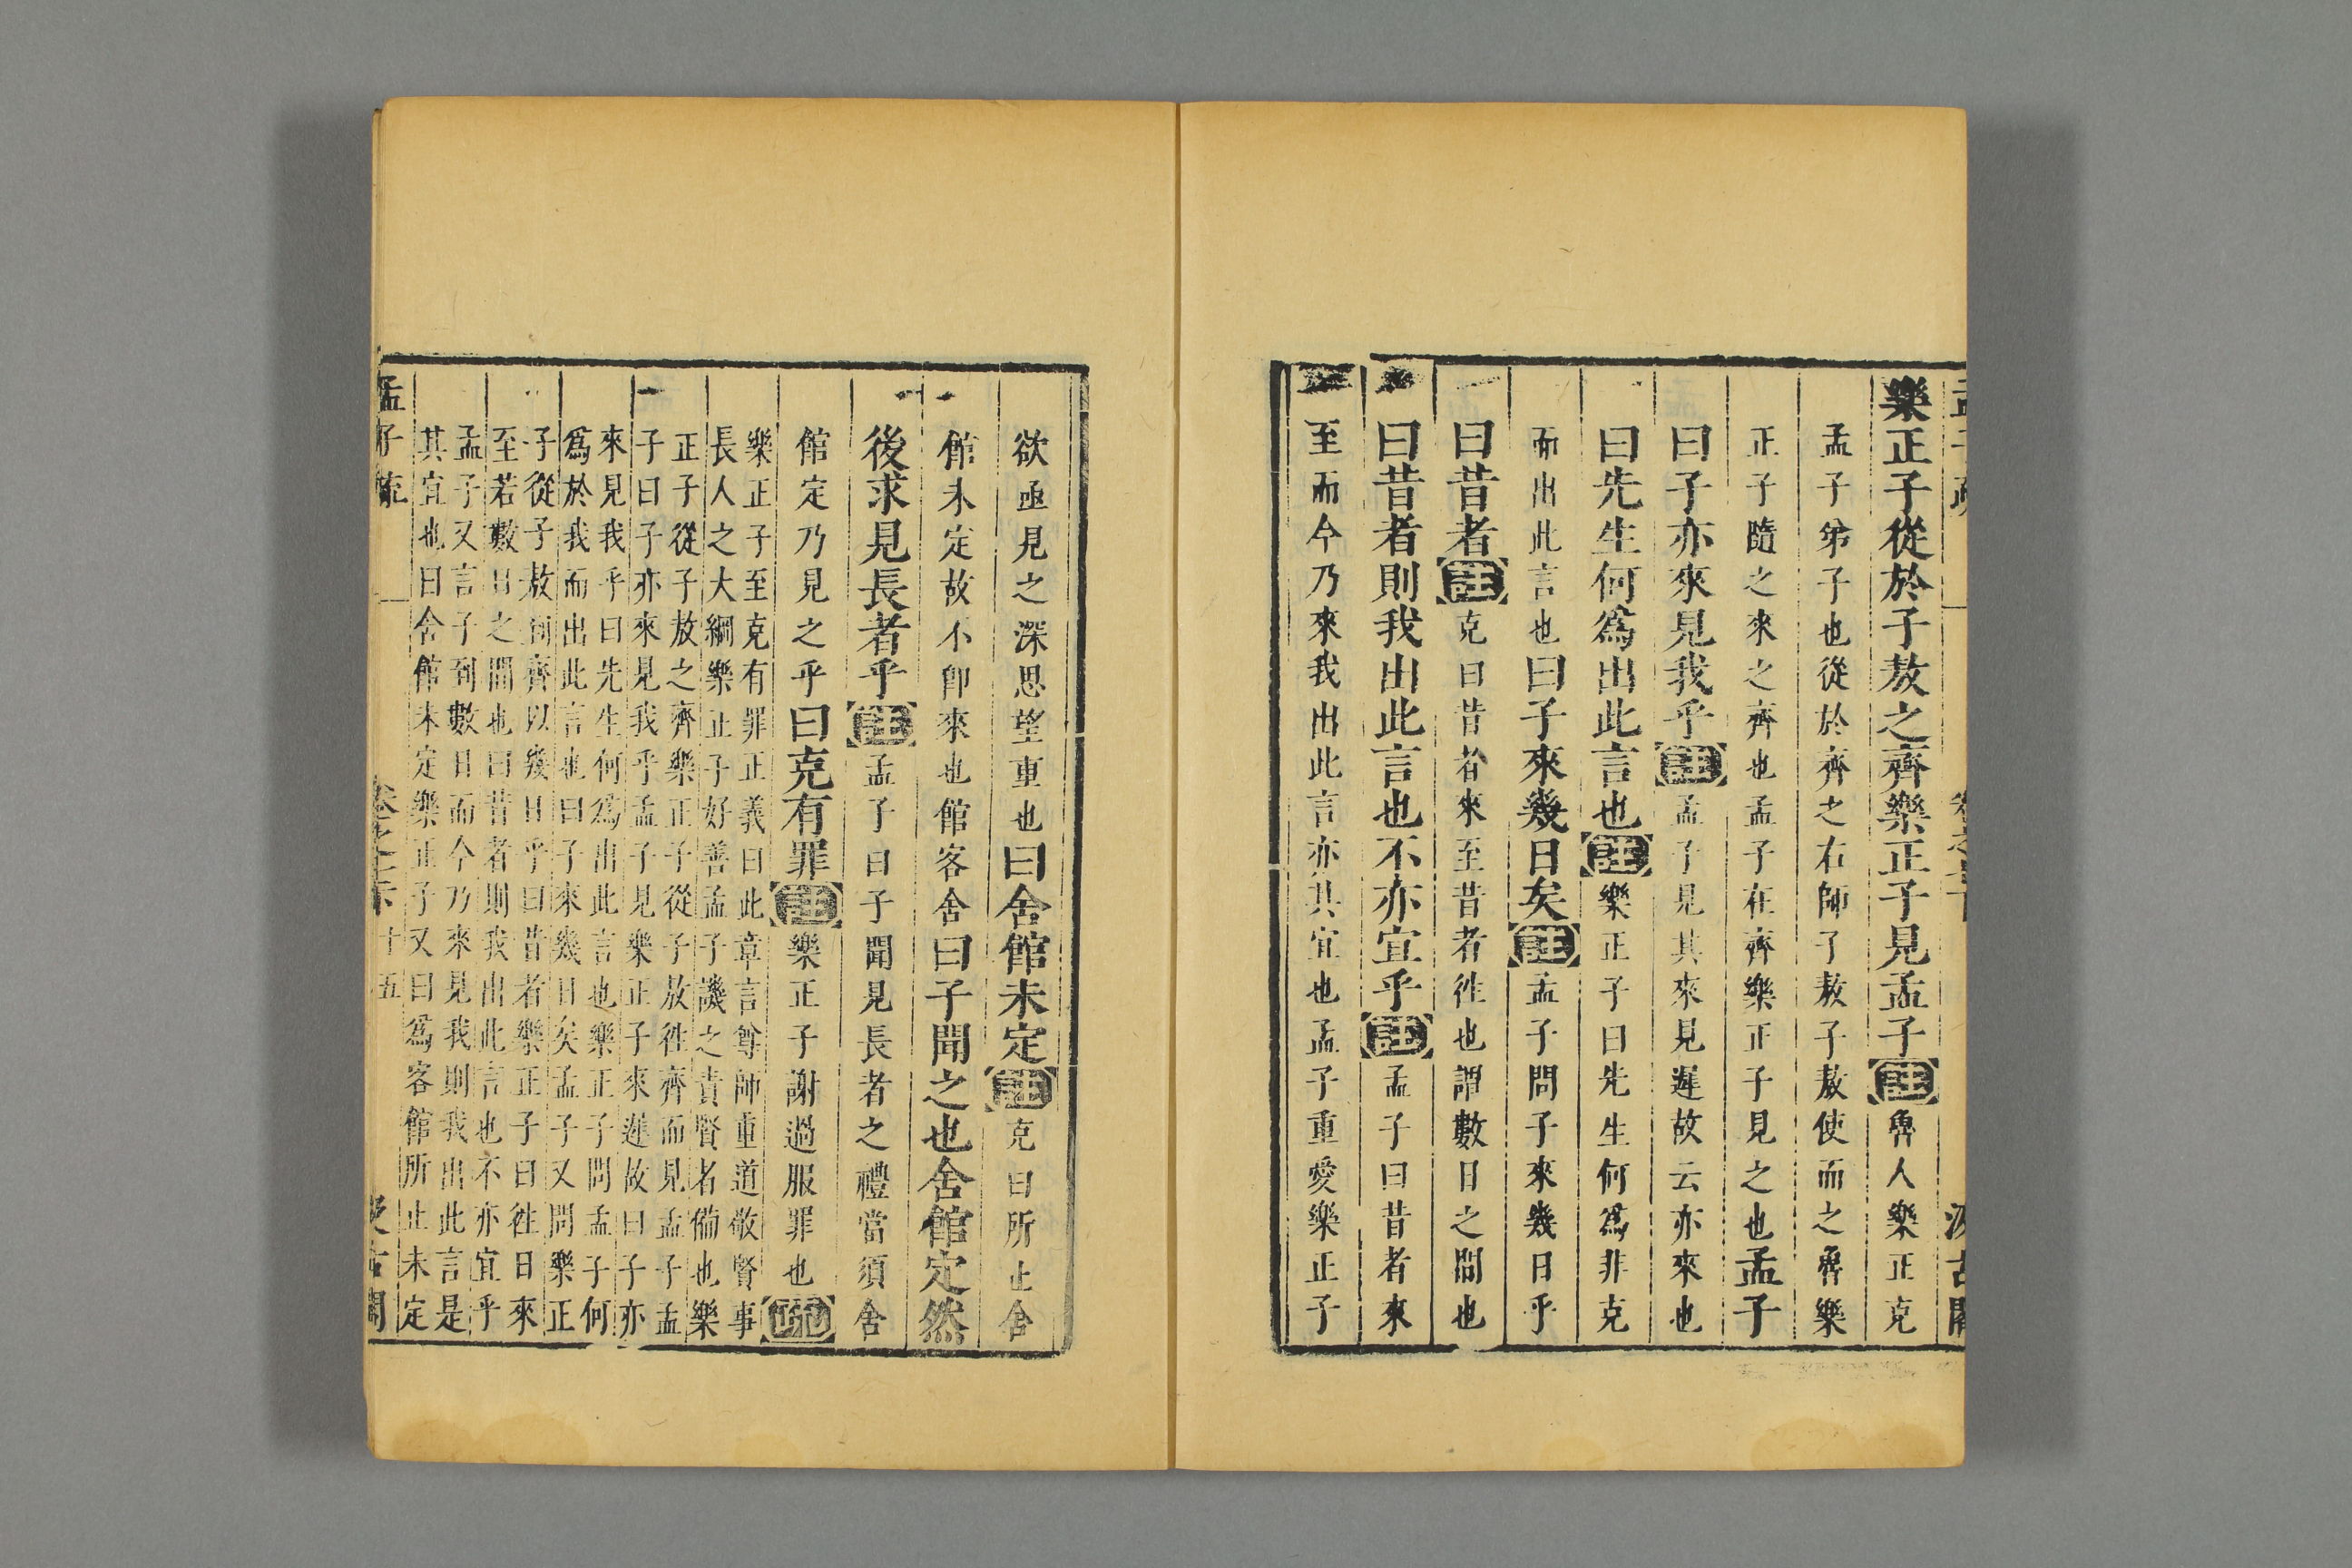 樂正子從於子敖之齊樂正子見孟子註魯人樂正克
孟子弟子也從於齊之右師子敖子敖使而之魯樂
正子隨之來之齊也孟子在齊樂正子見之也孟子
曰子亦來見我乎註孟子見其來見遲故云亦來也
曰先生何爲出此言也註樂正子曰先生何爲非克
而出此言也曰子來幾日矣註孟子問子來幾日乎
曰昔者註克曰昔者來至昔者徃也謂數日之間也
曰昔者則我出此言也不亦宜乎註孟子曰昔者來
至而今乃來我出此言亦其宜也孟子重愛樂正子
欲亟見之深思望重也曰舍館未定註克曰所止舍
館未定故不卽來也館客舍曰子聞之也舍館定然
後求見長者乎註孟子曰子聞見長者之禮當須舍
館定乃見之乎曰克有罪註樂正子謝過服罪也疏
樂正子至克有罪正義曰此章言尊師重道敬賢事
長人之大綱樂正子好善孟子譏之責賢者備也樂
正子從子敖之齊樂正子從子敖徃齊而見孟子孟
子曰子亦來見我乎孟子見樂正子來遲故曰子亦
來見我乎曰先生何爲出此言也樂正子問孟子何
爲於我而出此言也曰子來幾日矣孟子又問樂正
子從子敖到齊以幾日乎曰昔者樂正子曰徃日來
至若數日之間也曰昔者則我出此言也不亦宜乎
孟子又言子到數日而今乃來見我則我出此言是
其宜也曰舍館未定樂正子又曰爲客館所止未定
孟子疏 卷之七下 十五 汲古閣